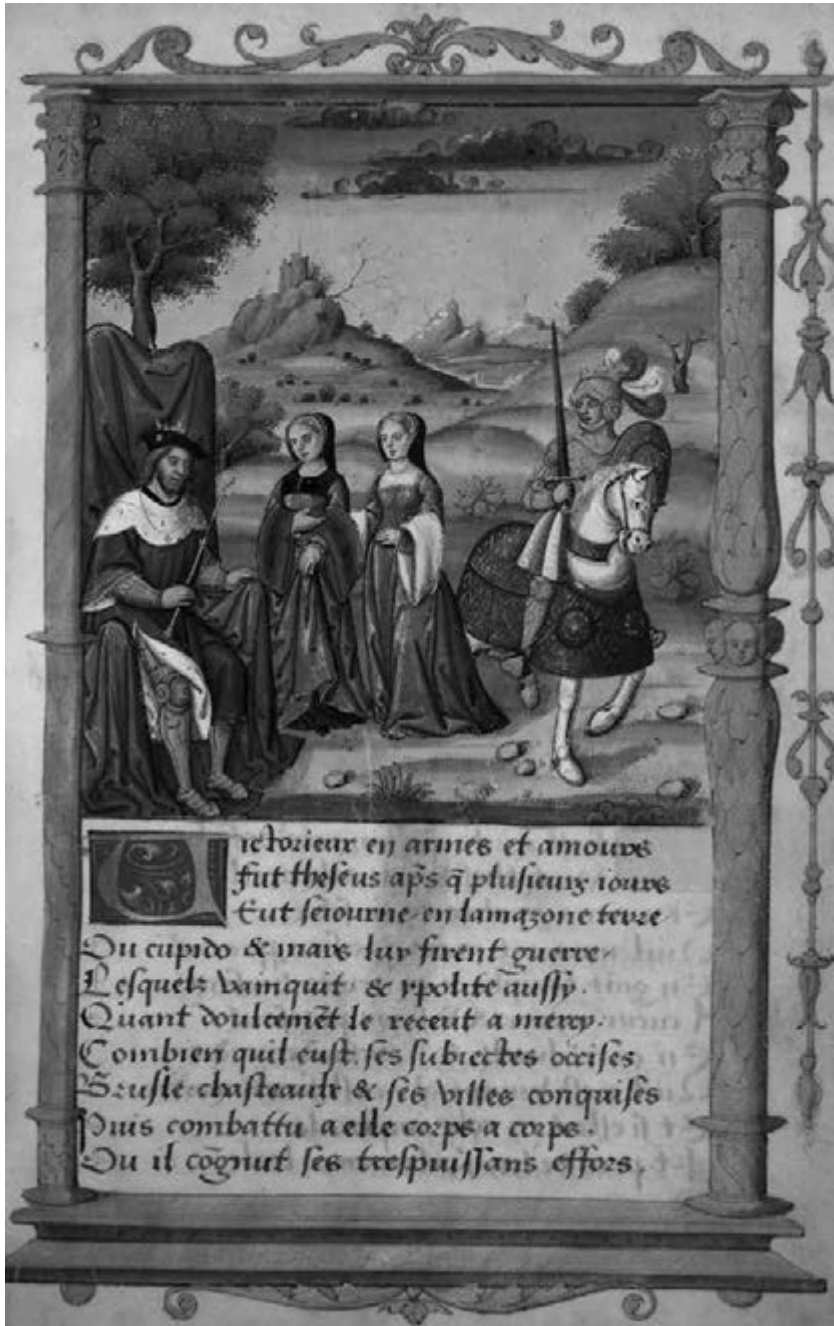 Victorieux en armes et amours
fut theseus ap̃s q̃ plusieurs iours
Eut seiourne en lamazone terre
Ou cupido & mars luy firent guerre
Lesquelz vainquit & ypolite aussy.
Quant doulcemẽt le receut a mercy.
Combien quil eust ses subiectes occises
Brusle chasteaulx & ses villes conquises
Puis combattu a elle corps a corps.
Ou il cõgnut ses trespuissans effors.